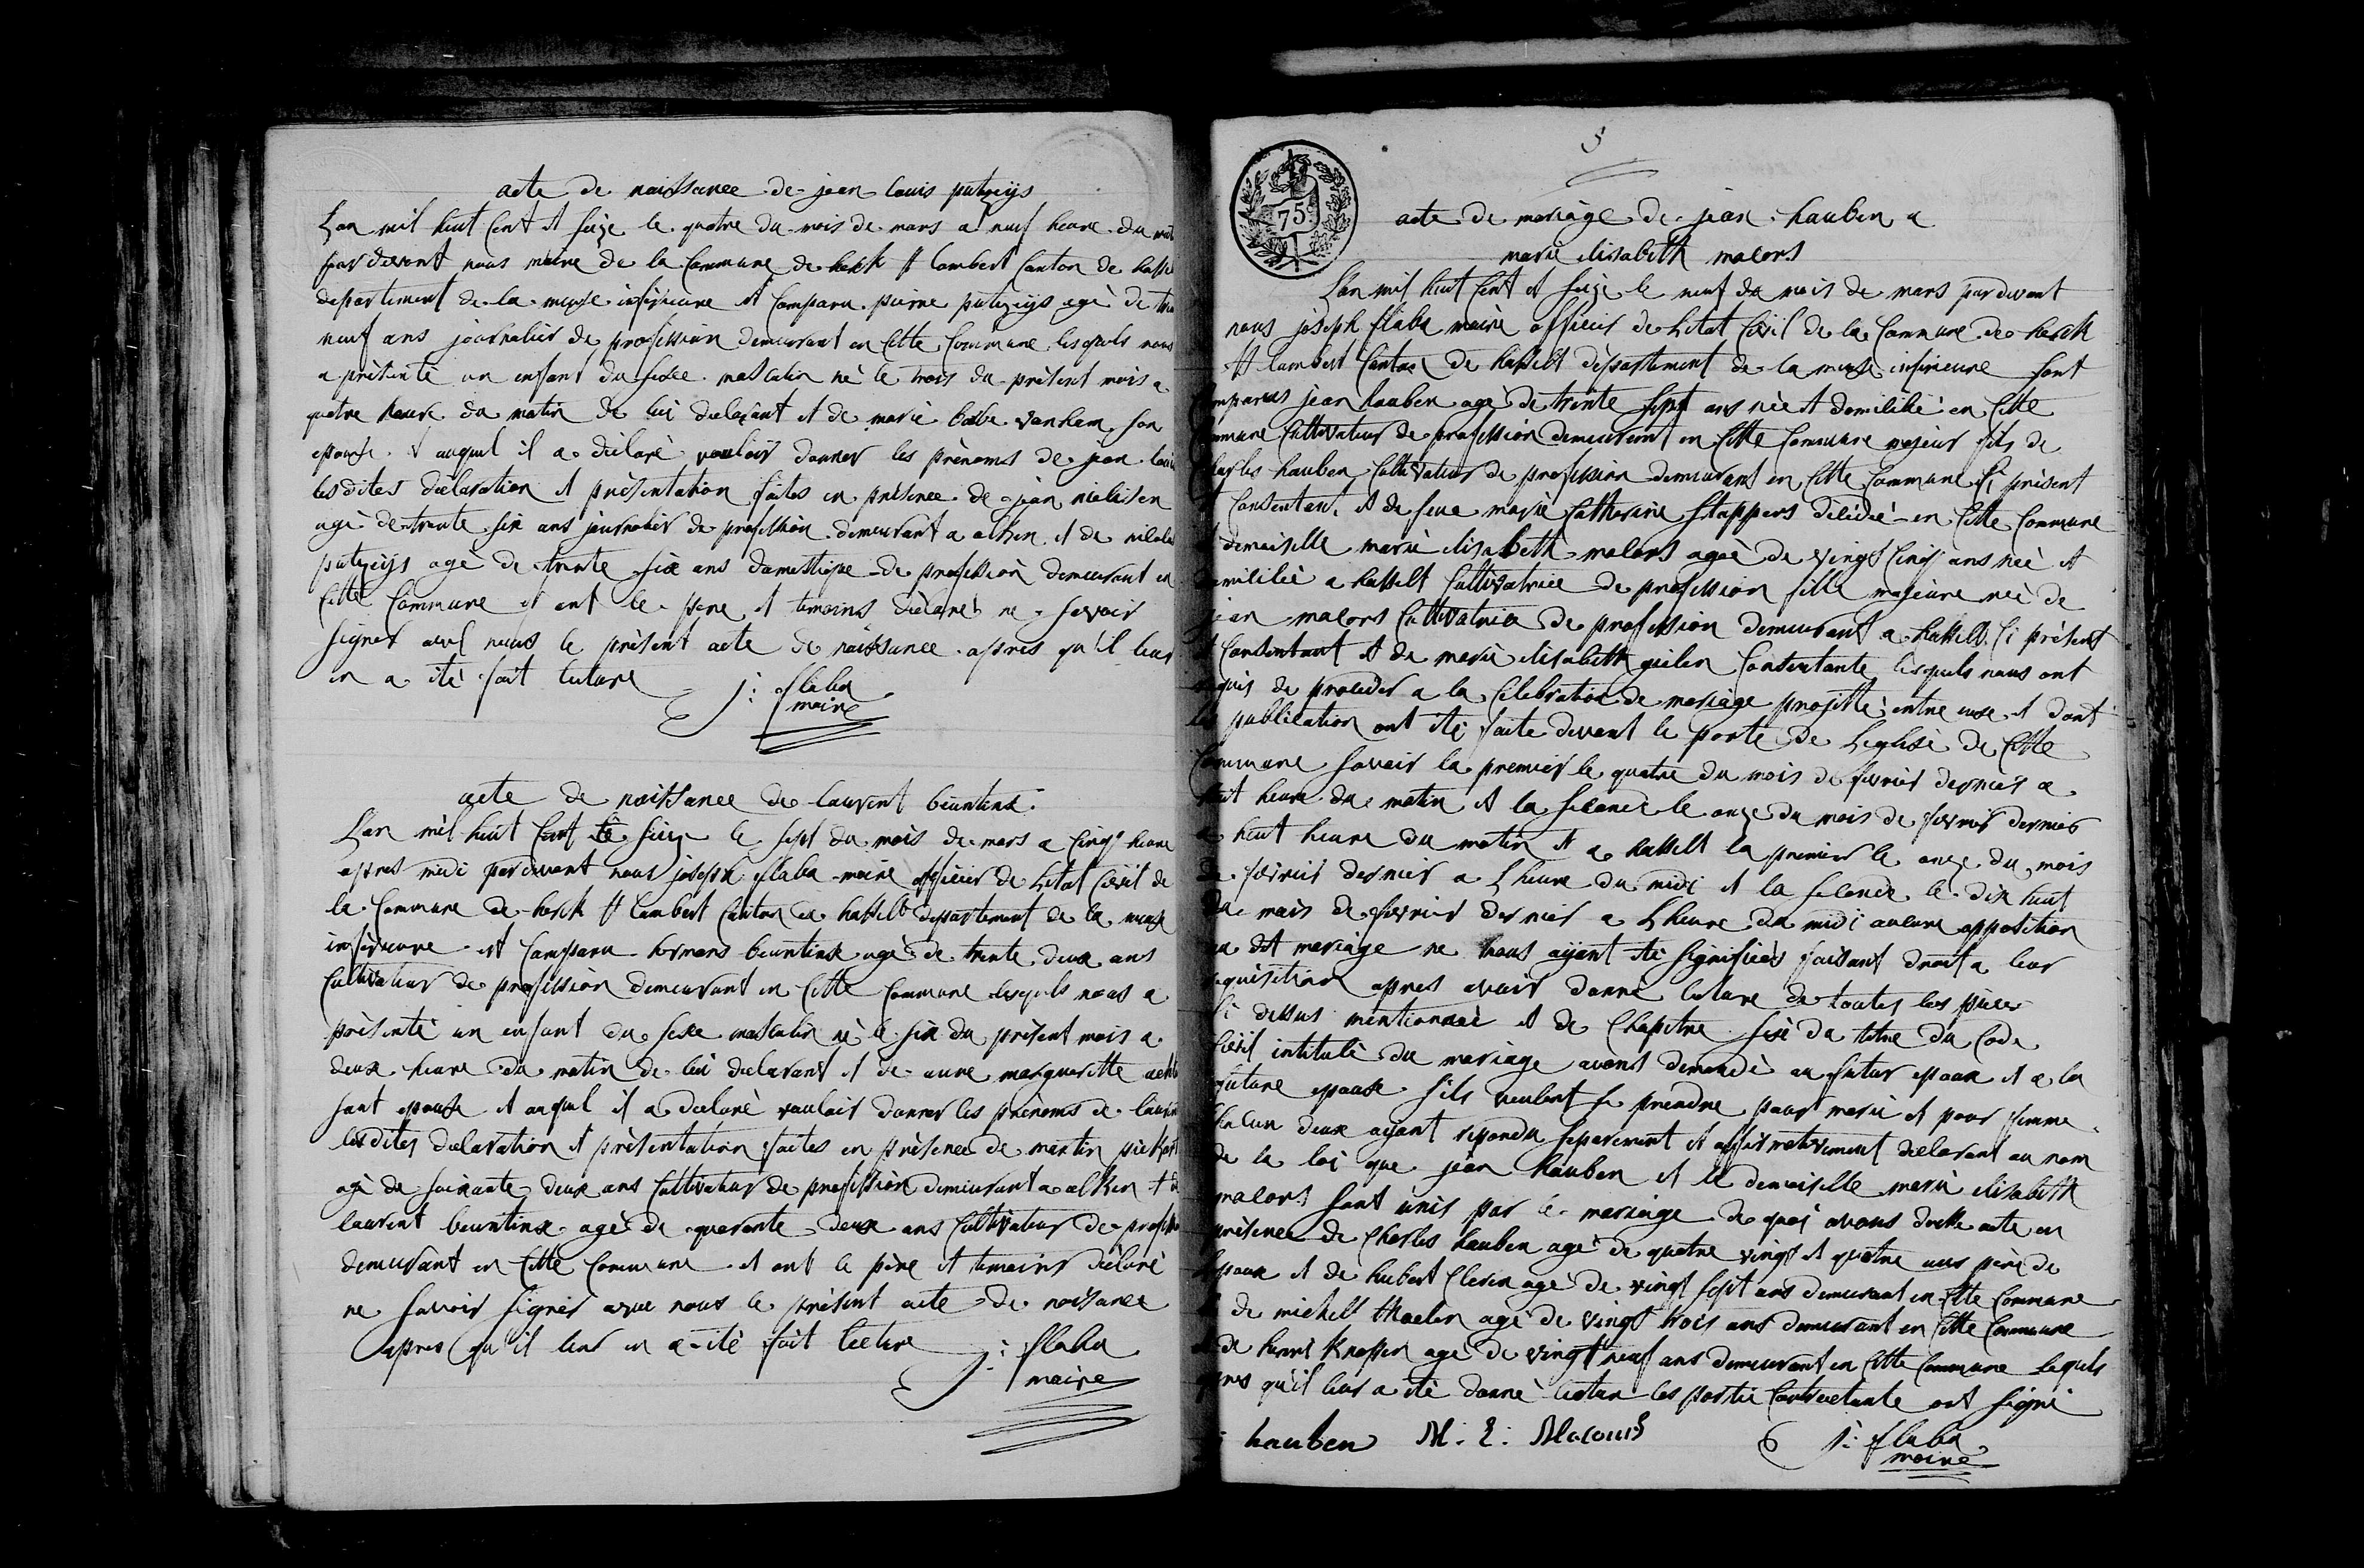 acte de naissance de jean louis putzeijs
L'an mil huit cent et seize le quatre du mois de mars a neuf heure du
par devant nous maire de la Commune de herck st lambert Canton de
departement de la meuse inferieure est Comparu pierre putzeijs agé de
neuf ans journalier de profession demeurant en Cette Commune lesquels nous
a présenté un enfant du sexe masculin né le trois du présent mois a
quatre heure du matin de lui declarant et de marie barbe vanham son
epouse et auquel il a déclaré vouloir donner les prénoms de jean louis
lesdites declaration et présentation faites en présence de jean
agé de trente six ans journalier de profession demeurant a alken et de
putzeijs agé de trente six ans domestique de profession demeurant en
Cette Commune et ont le pere et temoins déclaré ne savoir
signer avec nous le présent acte de naissance apres qu'il leur
en a été fait lecture
j: flaba
maire
acte de naissance de laurent beuntinx
L'an mil huit Cent et seize le sept du mois de mars a Cinq heure
apres midi pardevant nous joseph flaba maire officier de L'etat Civil de
la Commune de herck st lambert Canton de hasselt departement de la meuse
inferieure est Comparu hermans beuntinx agé de trente deux ans
Cultivateur de profession demeurant en Cette Commune lesquels nous a
présenté un enfant du sexe masculin né le six du présent mois a
deux heure du matin de lui declarant et de anne margueritte
sont epouse et auquel il a declaré vouloir donner les prénoms de
lesdites declaration et présentation faites en présence de martin
agé de soixante deux ans Cultivateur de profession demeurant a alken et
laurent beuntinx agé de quarante deux ans Cultivateur de
demeurant en Cette Commune et ont le père et temoins déclaré
ne savoir signer avec nous le présent acte de naissance
apres qu'il leur en a été fait lecture
j: flaba
maire
5
75
acte de mariage de jean hauben a
marie elisabeth macors
L'an mil huit Cent et seize le neuf du mois de mars par devant
nous joseph flaba maire officier de L'etat Civil de la Commune de herck
st lambert Canton de hasselt département de la meuse inferieure sont
jean hauben agé de trente sept ans née et domicilié en Cette
Cultivateur de profession demeurant en Cette Commune majeur fils de
Charles hauben Cultivateur de profession demeurant en Cette Commune Ci présent
Consentant et de feue marie Catherine Stappers décédé en Cette Commune
demoiselle marie elisabeth macors agée de vingt Cinq ans née et
domicilié a hasselt Cultivatrice de profession fille majeure née de
jean macors Cultivatrice de profession demeurant a hasselt Ci présent
Consentant et de marie elisabeth geilen Consentante lesquels nous ont
requis de proceder a la Célébration de mariage projetté entre eux et dont
les publication ont été faite devant le porte de L'eglise de Cette
Commune savoir la premier le quatre du mois de fevrier dernier a
huit heure du matin et la seconde le onze du mois de fevrier dernier
a huit heure du matin et a hasselt la premier le onze du mois
de fevrier dernier a L'heure du midi et la seconde le dix huit
du mois de fevrier dernier a L'heure du midi aucune opposition
au dit mariage ne nous ayant été signifiées faisant droit a leur
requisition apres avoir donné lecture de toutes les pieces
Ci dessus mentionnée et de Chapitre six du titre du Code
Civil intitulé du mariage avons demandé au futur epoux et a la
future epouse s'ils veulent se prendre pour marie et pour femme
Chacun deux ayant repondu separement et affirmativement declarant au nom
de la loi que jean hauben et le demoiselle marie elisabeth
macors sont unis par le mariage de quoi avons dressé acte en
présence de Charles hauben agé de quatre vingt et quatre ans père de
L'epoux et de hubert Clerin agé de vingt sept ans demeurant en Cette Commune
de michell thaelen agé de vingt trois ans demeurant en Cette Commune
de henri Knapen agé de vingt neuf ans demeurant en Cette Commune lequels
apres qu'il leur a été donné lecture les partie Contractante ont signé
hauben M: E: Macours
j: flaba
maire